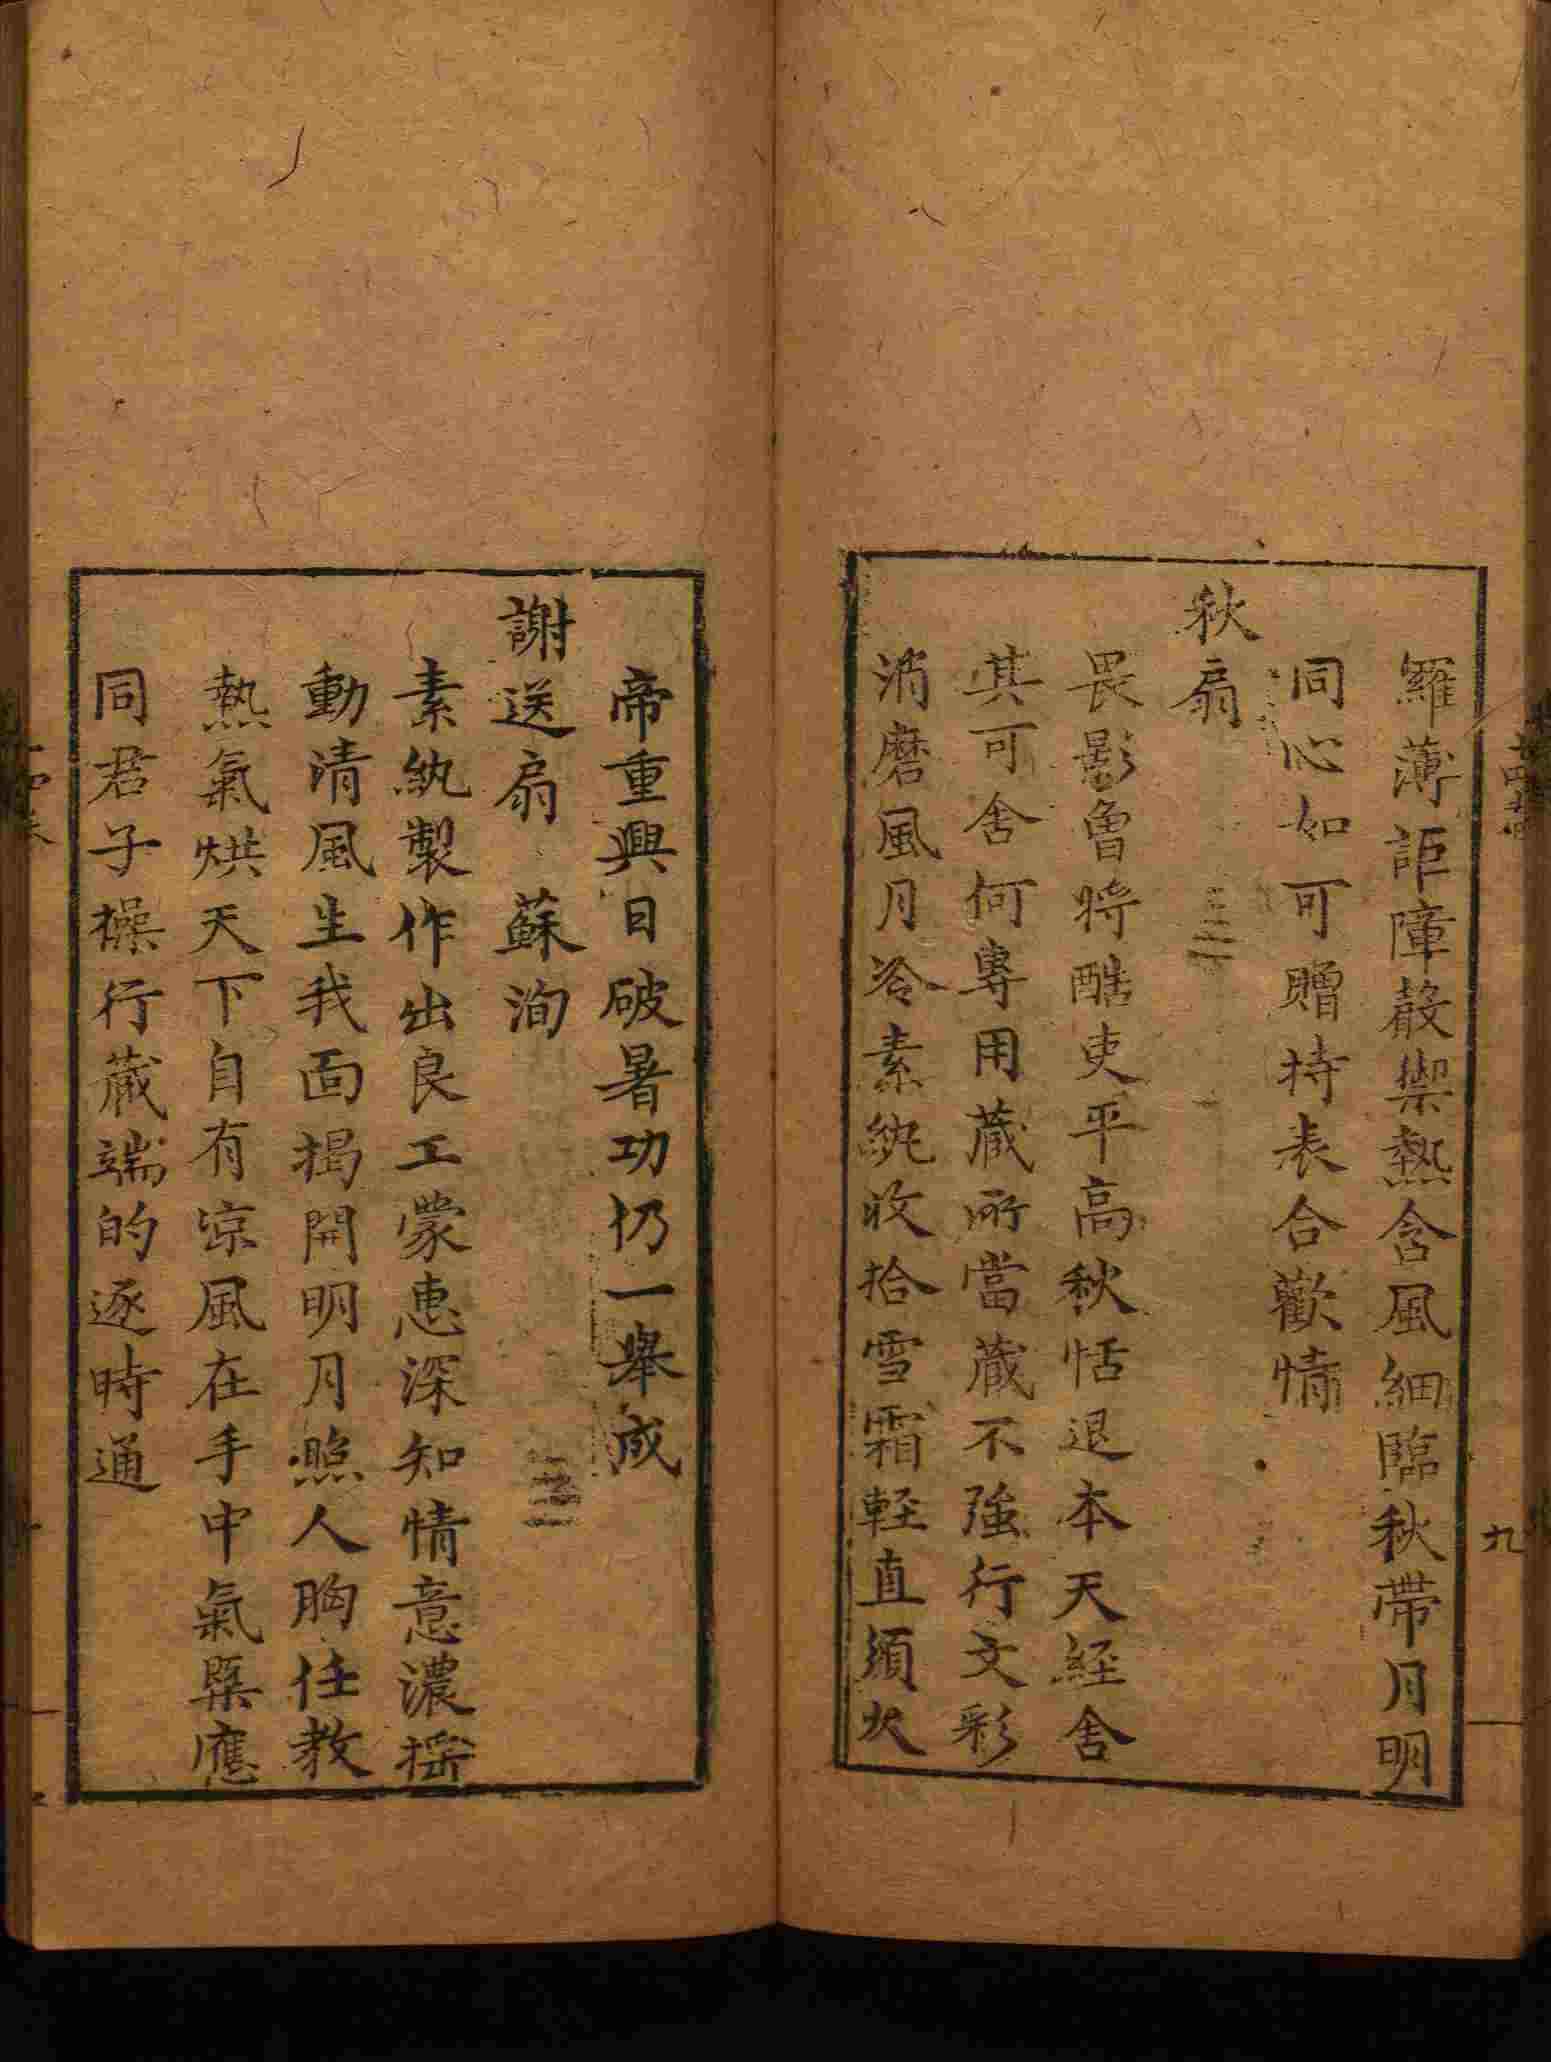 羅薄詎障嚴禦熱含風細臨秋帶月明
同心如可贈持表合歡情
秋扇
畏影魯時酷吏平高秋恬退本天經舍
其可舍何專用蔵所當蔵不強行文彩
消磨風月冷素紈收拾雪霜軽直須火
帝重興日破暑功仍一舉成
謝送扇　蘇洵
素紈製作出良工蒙惠深知情意濃揺
動清風生我面揭開明月照人胸任教
熱氣烘天下自有凉風在手中氣槩應
同君子操行蔵端的逐時通
九